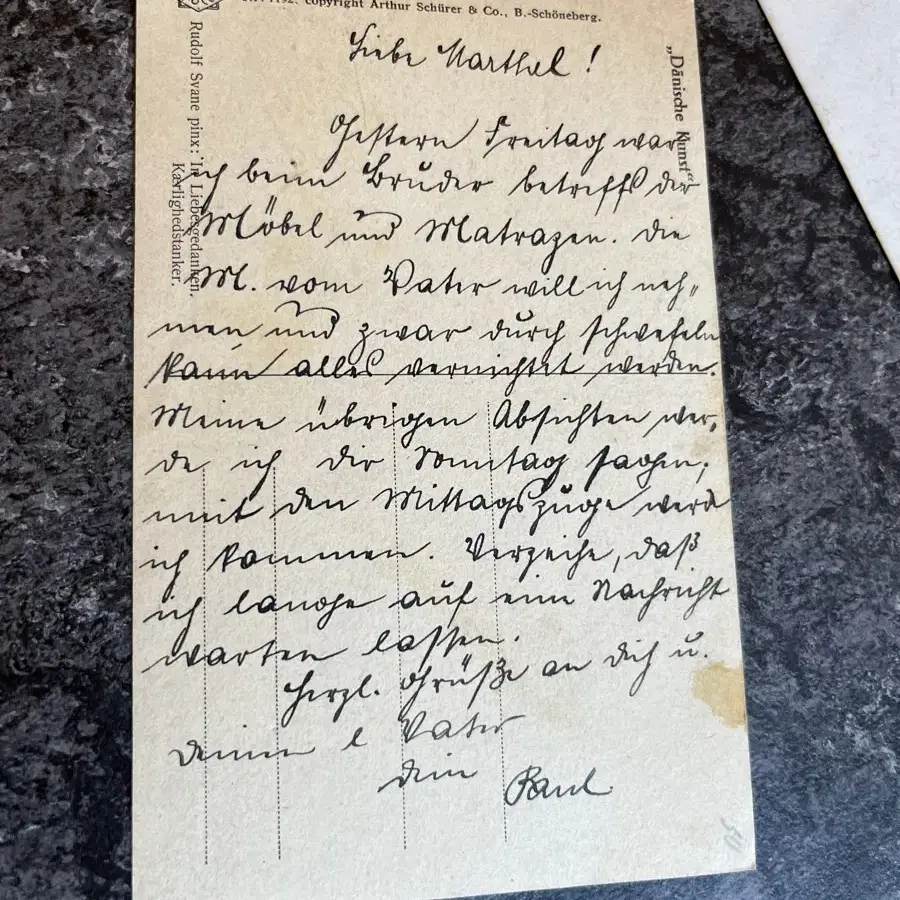 copyright Arthur Schürer & Co., B.-Schöneberg.
„Dänische Kunst“
Rudolf Svane pinx: In Liebesgedanken.
Kærlighedstanker.
Liebe Marthel!
Gestern Freitag war
ich beim Bruder betreffs der
Möbel und Matrazen. Die
M. vom Vater will ich neh„
men und zwar durch schwefeln
kann alles vernichtet werden.
Meine übrigen Absichten wer„
de ich dir Sonntag sagen;
mit den Mittagszuge werd
ich kommen. Verzeihe, daß
ich lange auf eine Nachricht
warten lassen.
Herzl. Grüße an dich u.
deinen l Vater
dein Paul